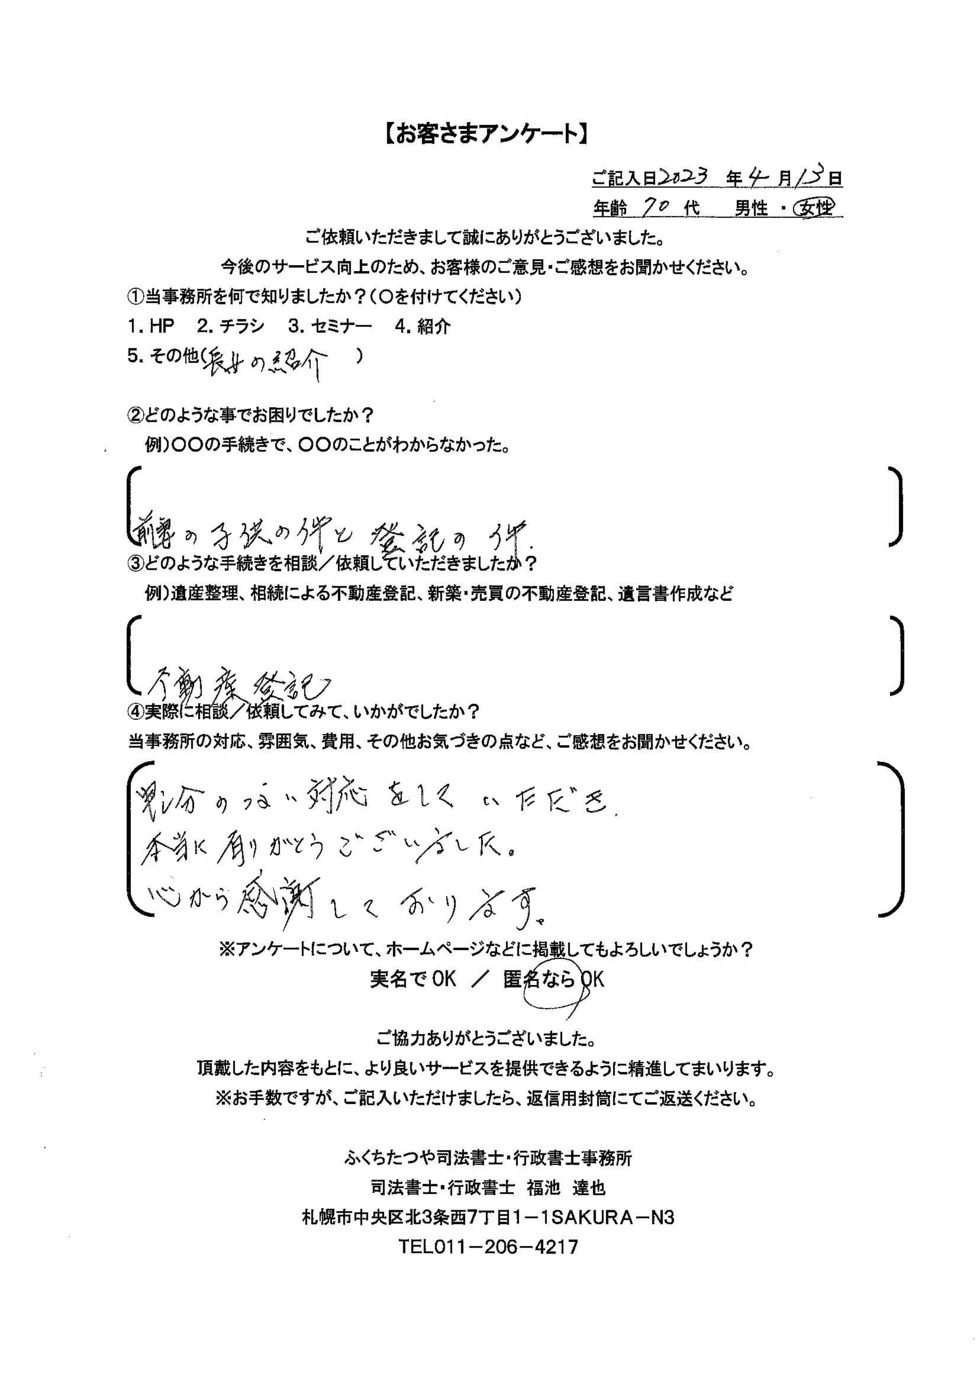 【お客さまアンケート】
ご記入日2023 年 4 月 13 日
年齢 70 代 男性 ・ 女性
ご依頼いただきまして誠にありがとうございました。
今後のサービス向上のため、お客様のご意見・ご感想をお聞かせください。
①当事務所を何で知りましたか？(〇を付けてください)
1. HP 2. チラシ 3. セミナー 4. 紹介
5. その他(長女の紹介 )
②どのような事でお困りでしたか？
例)〇〇の手続きで、〇〇のことがわからなかった。
前妻の子供の件と登記の件.
③どのような手続きを相談／依頼していただきましたか？
例)遺産整理、相続による不動産登記、新築・売買の不動産登記、遺言書作成など
不動産登記
④実際に相談／依頼してみて、いかがでしたか？
当事務所の対応、雰囲気、費用、その他お気づきの点など、ご感想をお聞かせください。
分のない対応をしていただき.
本当に有りがとうございました。
心から感謝しております。
※アンケートについて、ホームページなどに掲載してもよろしいでしょうか？
実名でOK ／ 匿名ならOK
ご協力ありがとうございました。
頂戴した内容をもとに、より良いサービスを提供できるように精進してまいります。
※お手数ですが、ご記入いただけましたら、返信用封筒にてご返送ください。
ふくちたつや司法書士・行政書士事務所
司法書士・行政書士 福池 達也
札幌市中央区北3条西7丁目1－1SAKURA－N3
TEL011－206－4217